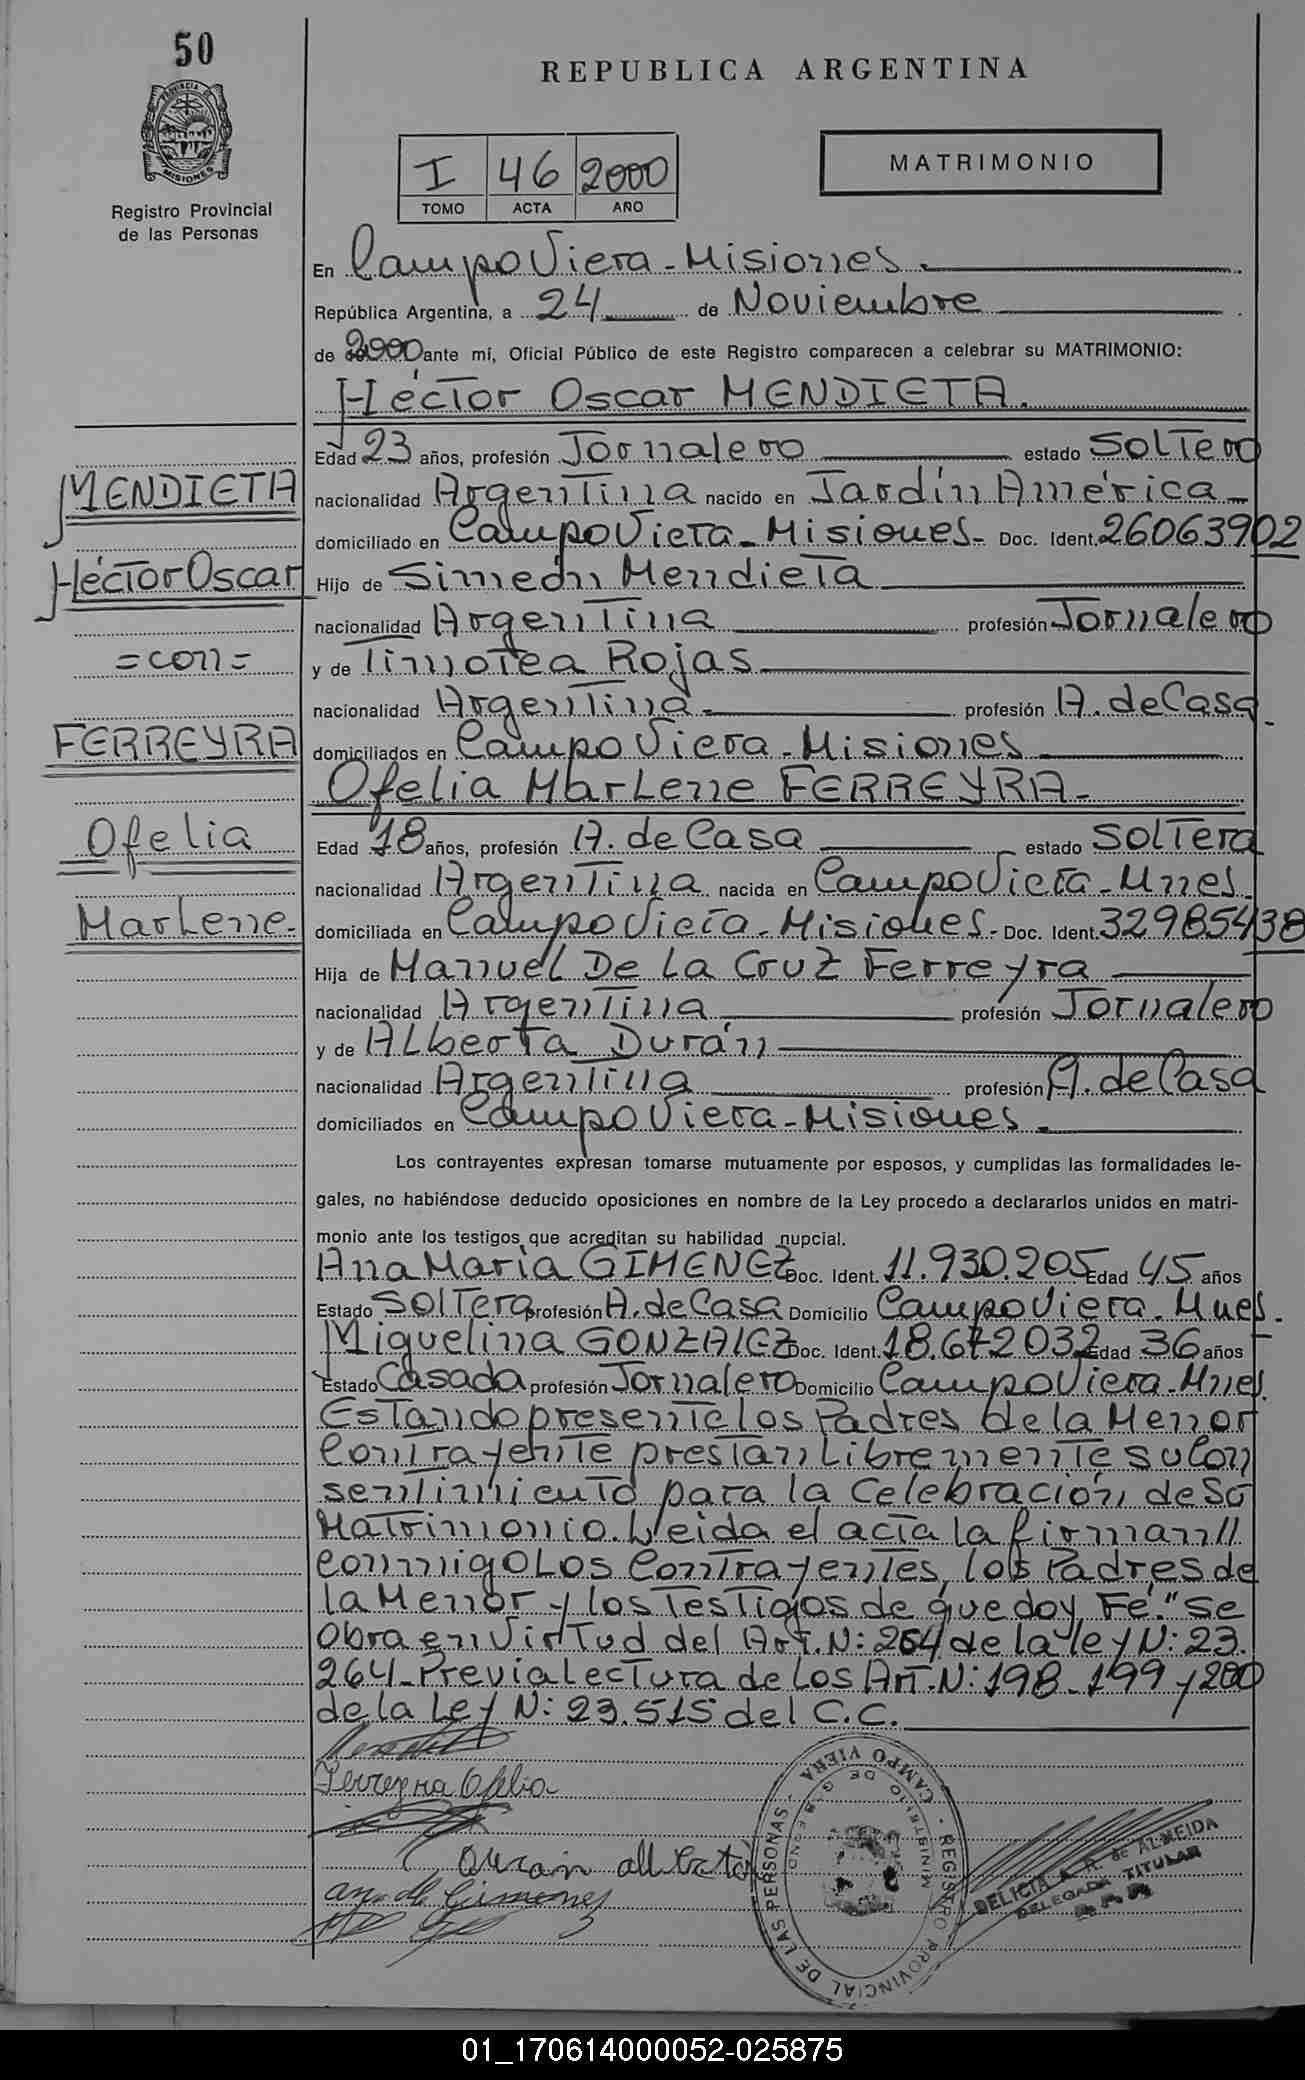 50
PROVINCIA DE
MISIONES
Registro Provincial
de las Personas
REPUBLICA ARGENTINA
I 46 2000
TOMO ACTA AÑO
MATRIMONIO
En Campo Viera - Misiones.
República Argentina, a 24 de Noviembre
de 2000 ante mí, Oficial Público de este Registro comparecen a celebrar su MATRIMONIO:
Héctor Oscar MENDIETA.
Edad 23 años, profesión Jornalero estado Soltero
nacionalidad Argentina nacido en Jardín América
domiciliado en Campo Viera - Misiones - Doc. Ident. 26063902
Hijo de Simeón Mendieta
nacionalidad Argentina profesión Jornalero
y de Timotea Rojas
nacionalidad Argentina profesión A. de Casa.
domiciliados en Campo Viera - Misiones
Ofelia Marlene FERREYRA -
Edad 18 años, profesión A. de Casa estado Soltera
nacionalidad Argentina nacida en Campo Viera - Mnes.
domiciliada en Campo Viera - Misiones - Doc. Ident. 32985438
Hija de Manuel De La Cruz Ferreyra
nacionalidad Argentina profesión Jornalero
y de Alberta Durán
nacionalidad Argentina profesión A. de Casa
domiciliados en Campo Viera - Misiones.
Los contrayentes expresan tomarse mutuamente por esposos, y cumplidas las formalidades le-
gales, no habiéndose deducido oposiciones en nombre de la Ley procedo a declararlos unidos en matri-
monio ante los testigos que acreditan su habilidad nupcial.
Ana María GIMENEZ Doc. Ident. 11.930.205 Edad 45 años
Estado Soltera profesión A. de Casa Domicilio Campo Viera - Mnes.
Miguelina GONZALEZ Doc. Ident. 18.672032 Edad 36 años
Estado Casada profesión Jornalero Domicilio Campo Viera - Mnes.
Estando presente los Padres de la Menor
Contrayente prestan Libremente su con
sentimiento para la Celebración de su
Matrimonio. Leida el acta la firman //
conmigo Los Contrayentes, los Padres de
la Menor y los Testigos de que doy Fé." Se
Obra en Virtud del Art. N: 264 de la ley N: 23.
264 - Previa lectura de los Art. N: 198 - 199 y 200
de la Ley N: 23.515 del C.C.
MENDIETA
Héctor Oscar
= con =
FERREYRA
Ofelia
Marlene -
Ferreyra Ofelia
Duran Alberta
REGISTRO PROVINCIAL DE LAS PERSONAS - CAMPO VIERA -
MINISTERIO DE GOBIERNO
DELICIA A. R. de ALMEIDA
DELEGADA TITULAR
01_170614000052-025875